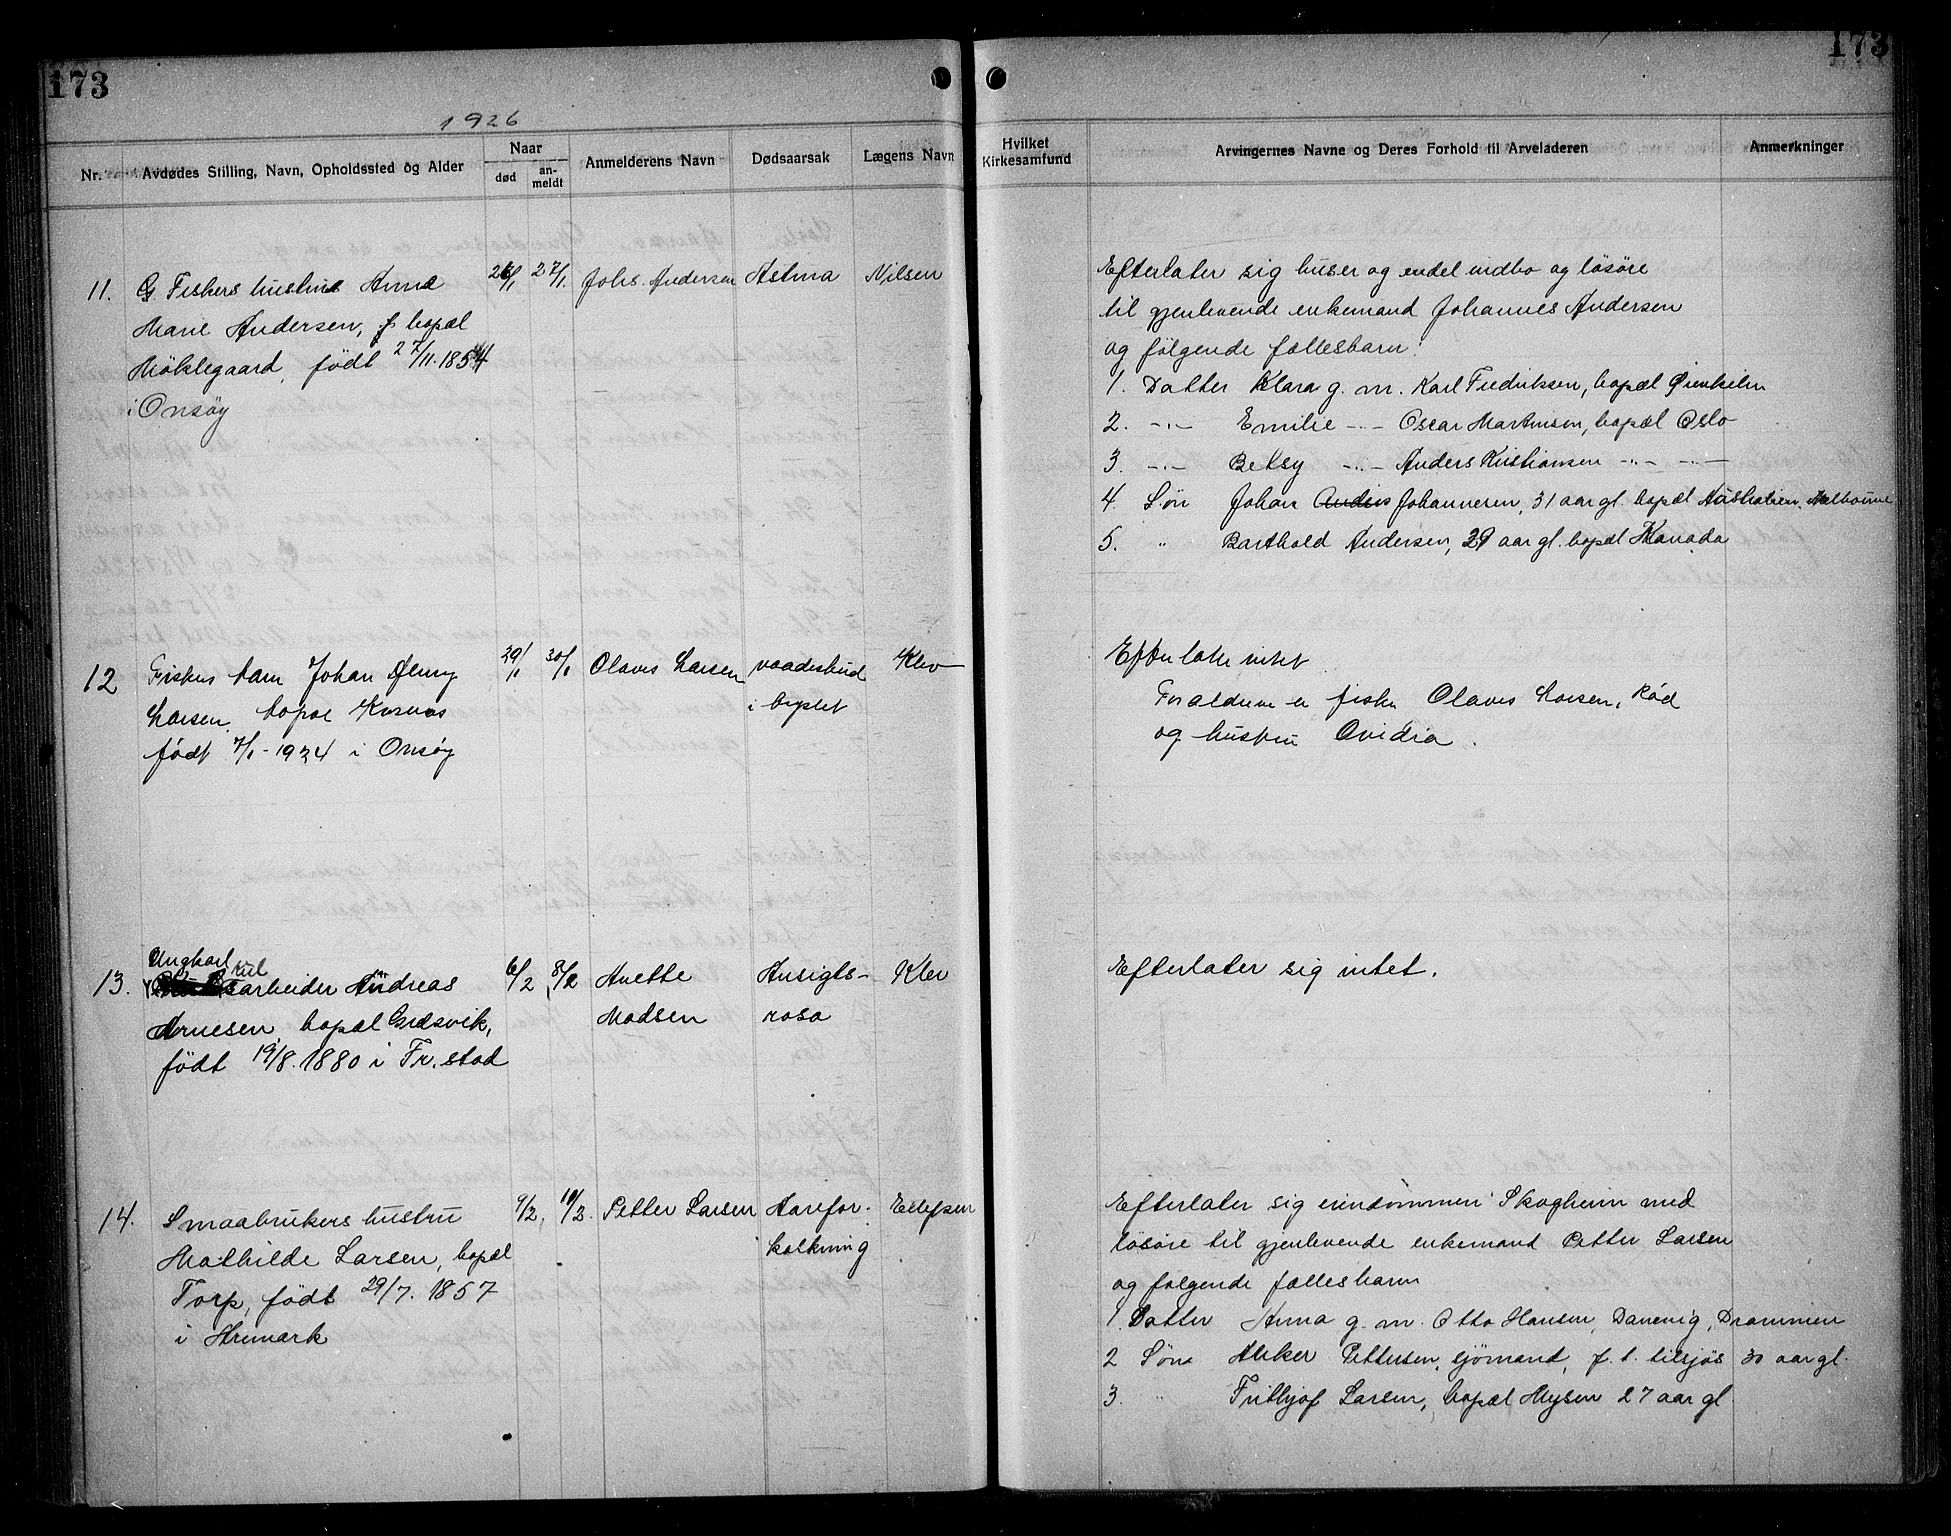 173
173
1926
Nr.
Avdødes Stilling, Navn, Opholdssted og Alder
Naar
død
an-
meldt
Anmelderens Navn
Dødsaarsak
Lægens Navn
Hvilket
Kirkesamfund
Arvingernes Navne og Deres Forhold til Arveladeren
Anmerkninger
11. G Fiskers hustru Anne 26/1 27/1. Johs. Andersen Astma Nilsen
Marie Andersen, bopæl
Møklegaard, født 27/11.1854
i Onsøy
Efterlater sig huser og endel indbo og løsøre
til gjenlevende enkemand Johannes Andersen
og følgende fællesbarn:
1. Datter Klara g. m. Karl Fredriksen, bopæl Øienkilen
2. -"- Emilie -"- Oscar Martinsen, bopæl Oslo
3. -"- Betsy -"- Anders Kristiansen -"- -"-
4. Søn Johan Johannesen, 31 aar gl. bopæl Australien, Melbourne
5. " Barthold Andersen, 29 aar gl. bopæl Kanada
12 Fiskers barn Johan 29/1 30/1 Olaves Larsen vaadeskud Klev
Larsen, bopæl i brystet
født 7/1-1924 i Onsøy
Efterlater intet
Forældrene er fisker Olaves Larsen, Rød
og hustru Ovidia.
Ungkarl
13. arbeider Andreas 6/2 8/2 Anette Ansigts- Klev
Arnesen bopæl Gresvik, Madsen rosa
født 19/8.1880 i Fr.stad
Efterlater sig intet.
14. Smaabrukers hustru 9/2. 10/2. Petter Larsen Aarefor- Eilefsen
Mathilde Larsen, bopæl kalkning
Torp, født 29/7.1857
i Aremark
Efterlater sig eiendommen Skogheim med
løsøre til gjenlevende enkemand Petter Larsen
og følgende fællesbarn
1. Datter Anna g. m. Otto Hansen, Danevig, Drammen
2 Søn Pettersen, sjømand, f. t. tilsjøs 30 aar gl.
3. " Frithjof Larsen, bopæl Mysen 27 aar gl.